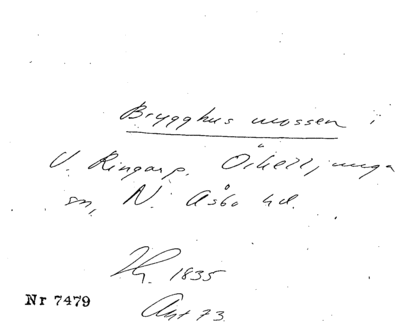 Brygghus mossen i
V. Ringarp. Örkelljunga
sn, N. Åsbo hd.
Th. 1835
Nr 7479
Akt 73